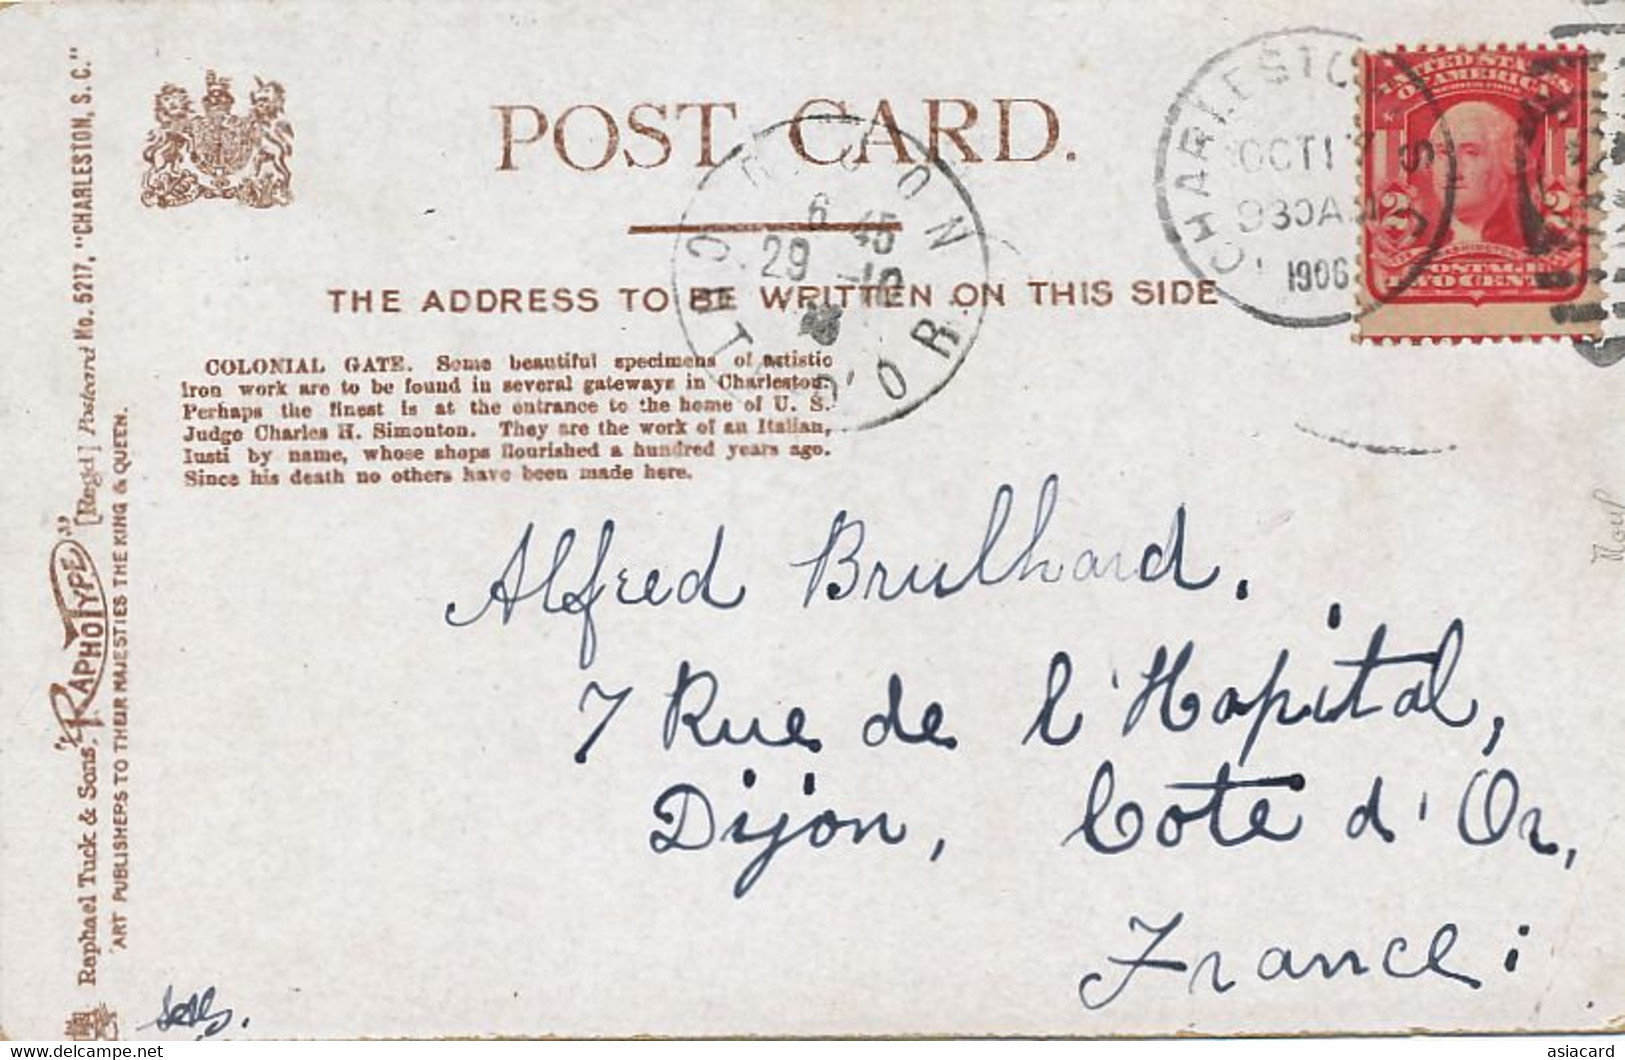 POST CARD.
THE ADDRESS TO BE WRITTEN ON THIS SIDE
COLONIAL GATE. Some beautiful specimens of artistic
iron work are to be found in several gateways in Charleston.
Perhaps the finest is at the entrance to the home of U. S.
Judge Charles H. Simonton. They are the work of an Italian,
Iusti by name, whose shops flourished a hundred years ago.
Since his death no others have been made here.
Raphael Tuck & Sons' "RAPHOTYPE" [Regd] Postcard No. 5217, "CHARLESTON, S. C."
ART PUBLISHERS TO THEIR MAJESTIES THE KING & QUEEN.
CHARLESTON S C
OCT 1
930 AM
1906
UNITED STATES
OF AMERICA
2 2
WASHINGTON
POSTAGE
TWO CENTS
DIJON
6 45
29 -10
COTE D'OR
Alfred Brulhard.
7 Rue de l'Hopital,
Dijon, Cote d'Or,
France
delcampe.net
asiacard